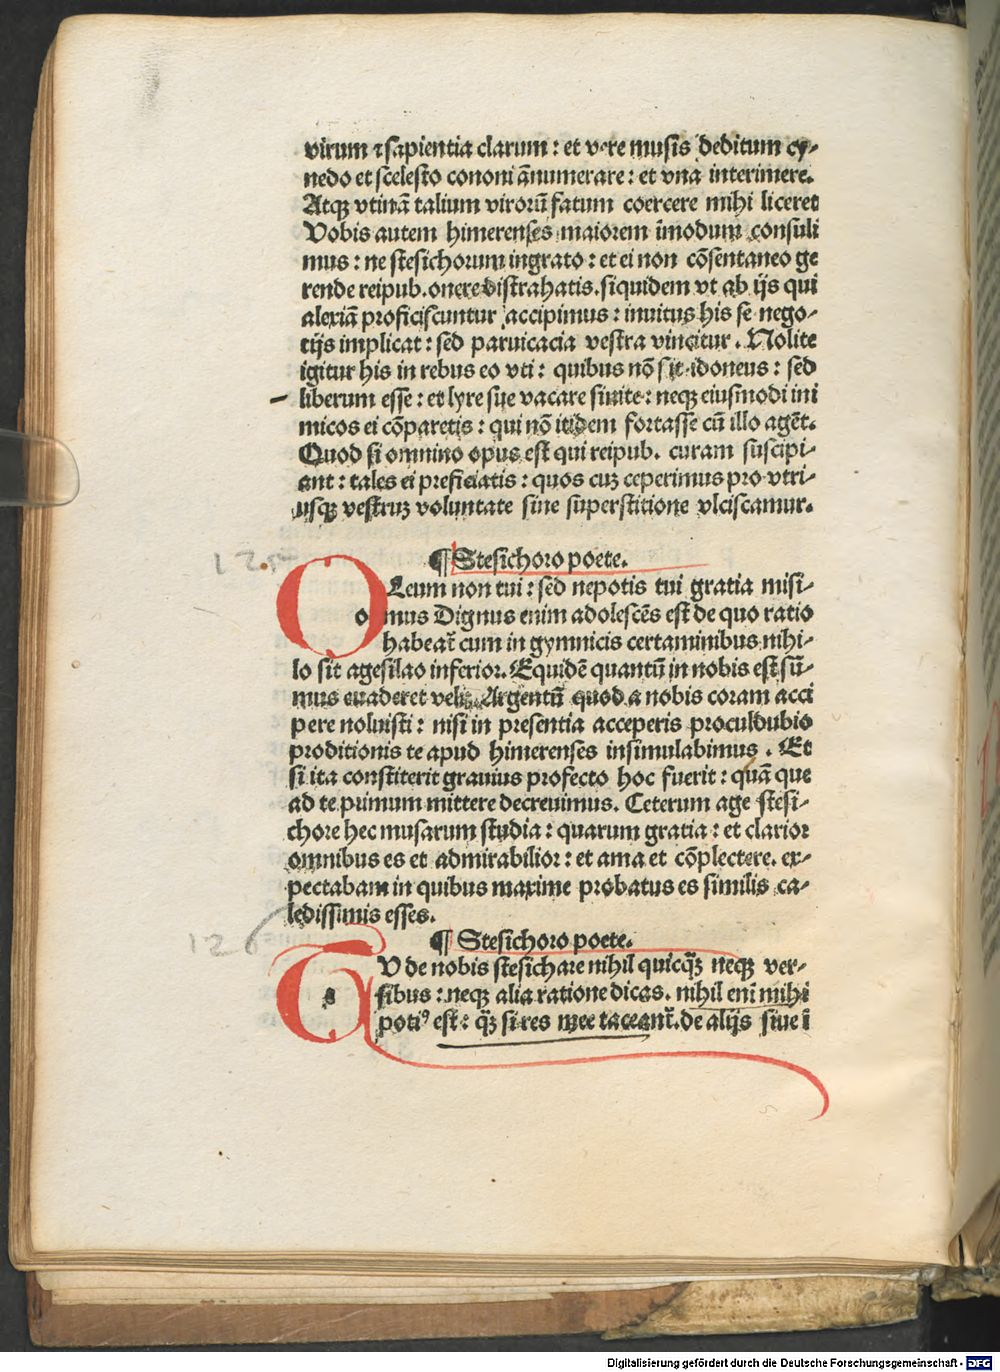 virum ⁊ sapientia clarum : et vere musis deditum cy⸗
nedo et scelesto cononi ānumerare : et vna interimere.
Atqꝫ vtinā talium virorū fatum coercere mihi liceret
Vobis autem himerenses maiorem īmodum consuli
mus : ne stesichorum ingrato : et ei non cōsentaneo ge
rende reipub. onere distrahatis. siquidem vt ab ijs qui
alexiā proficiscuntur accipimus : inuitus his se nego⸗
tijs implicat : sed paruicacia vestra vincitur. Nolite
igitur his in rebus eo vti : quibus nō sit idoneus : sed
liberum esse : et lyre sue vacare sinite : neqꝫ eiusmodi ini
micos ei cōparetis : qui nō itidem fortasse cū illo agēt.
Quod si omnino opus est qui reipub. curam suscipi⸗
ant : tales ei preficiatis : quos cuꝫ ceperimus pro vtri⸗
usqꝫ vestruꝫ voluntate sine superstitione vlciscamur.
125
¶ Stesichoro poete.
OLeum non tui : sed nepotis tui gratia misi⸗
o mus Dignus enim adolescēs est de quo ratio
habeat̄ cum in gymnicis certaminibus nihi⸗
lo sit agesilao inferior. Equidē quantū in nobis est sū⸗
mus euaderet velis. Argentū quod a nobis coram acci
pere noluisti : nisi in presentia acceperis proculdubio
proditionis te apud himerenses insimulabimus. Et
si ita constiterit grauius profecto hoc fuerit : quā que
ad te primum mittere decreuimus. Ceterum age stesi⸗
chore hec musarum studia : quarum gratia : et clarior
omnibus es et admirabilior : et ama et cōplectere. ex⸗
pectabam in quibus maxime probatus es similis ca⸗
ledissimis esses.
126
¶ Stesichoro poete.
TV de nobis stesichare nihil quicqꝫ̄ neqꝫ ver⸗
sibus : neqꝫ alia ratione dicas. nihil eni̅ mihi
potiꝰ est : qꝫ̄ si res mee taceant̄. de alijs siue ī
Digitalisierung gefördert durch die Deutsche Forschungsgemeinschaft - DFG